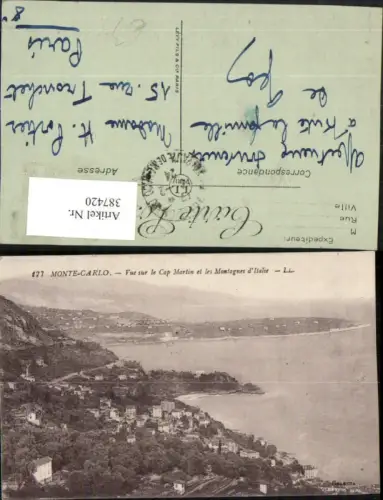 LEVY FILS & CIE PARIS
Madame H. Portier
15. rue Tronchet
Paris
8e
affectueux souvenirs
à toute la famille
de
Correspondance
Adresse
Carte
Expéditeur:
M
Rue
Ville
Artikel Nr.
387420
127 MONTE-CARLO. — Vue sur le Cap Martin et les Montagnes d'Italie — LL.